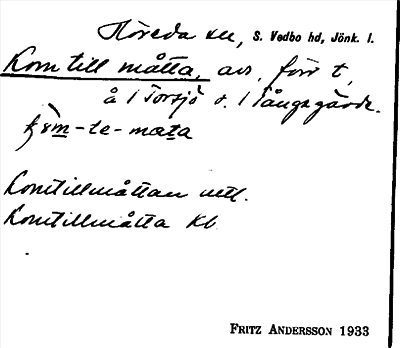 Höreda sn, S. Vedbo hd, Jönk. l.
Kom till måtta, avs. förr t,
å i Torsjö o. i Långagärde.
Komtillmåttan uttl.
Komtillmåtta Kb
FRITZ ANDERSSON 1933